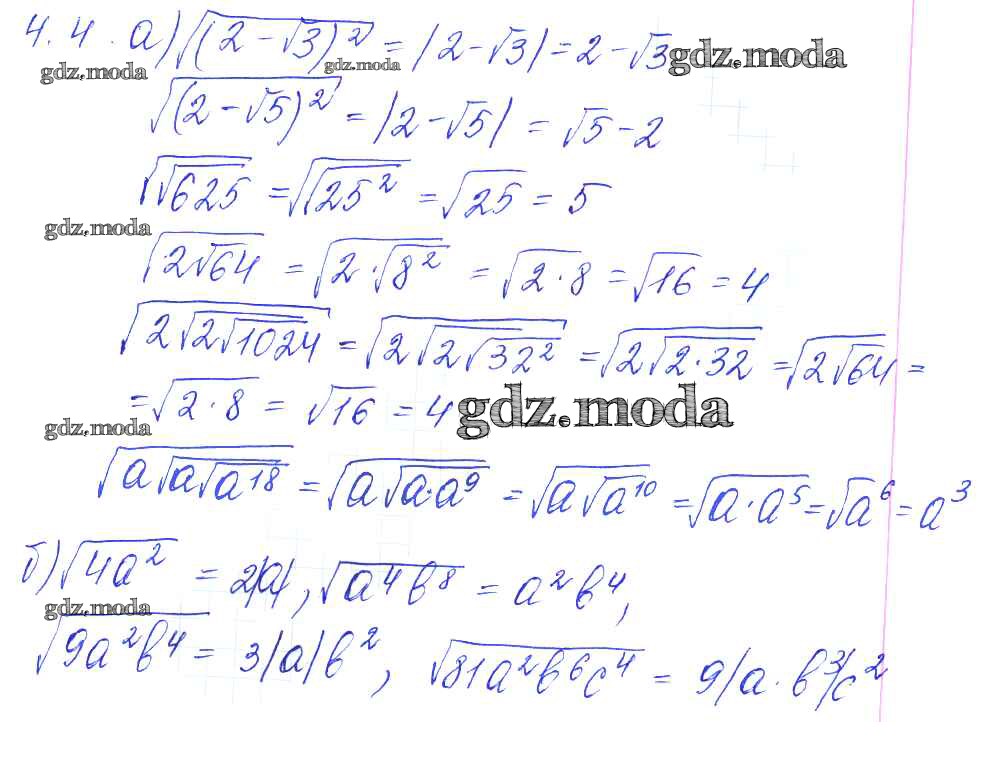 4.4. а) √(2 − √3)² = |2 − √3| = 2 − √3 gdz.moda
gdz.moda gdz.moda
√(2 − √5)² = |2 − √5| = √5 − 2
√√625 = √√25² = √25 = 5
gdz.moda
√2√64 = √2·√8² = √2·8 = √16 = 4
√2√2√1024 = √2√2√32² = √2√2·32 = √2√64 =
= √2·8 = √16 = 4 gdz.moda
gdz.moda
√a√a√a¹⁸ = √a√a·a⁹ = √a√a¹⁰ = √a·a⁵ = √a⁶ = a³
б) √4a² = 2|a|, √a⁴b⁸ = a²b⁴,
gdz.moda
√9a²b⁴ = 3|a|b², √81a²b⁶c⁴ = 9|a·b³|c²